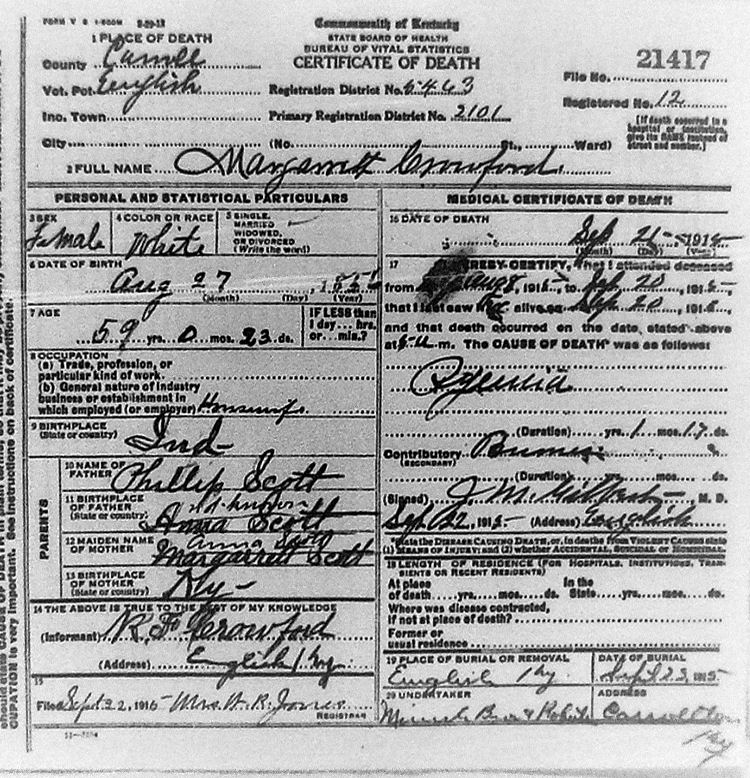 FORM V S 1-500M 8-29-13
Commonwealth of Kentucky
STATE BOARD OF HEALTH
BUREAU OF VITAL STATISTICS
CERTIFICATE OF DEATH
1 PLACE OF DEATH
County Carroll
Vot. Pct. English
Inc. Town
City
Registration District No. 5463
Primary Registration District No. 2101
(No. St., Ward)
21417
File No.
Registered No. 12
[If death occurred in a hospital or institution, give its NAME instead of street and number.]
2 FULL NAME Margarett Crowford
PERSONAL AND STATISTICAL PARTICULARS
3 SEX Female
4 COLOR OR RACE White
5 SINGLE, MARRIED WIDOWED, OR DIVORCED (Write the word)
6 DATE OF BIRTH
Aug 27
(Month) (Day) (Year)
7 AGE
59 yrs. 0 mos. 23 ds.
IF LESS than 1 day... hrs. or... min.?
8 OCCUPATION
(a) Trade, profession, or
particular kind of work
(b) General nature of industry
business or establishment in
which employed (or employer) Housewife
9 BIRTHPLACE
(State or country) Ind
PARENTS
10 NAME OF FATHER Phillip Scott
11 BIRTHPLACE OF FATHER (State or country)
Anna Scott
12 MAIDEN NAME OF MOTHER Anna Scott
Margarrett Scott
13 BIRTHPLACE OF MOTHER (State or country) Ky
14 THE ABOVE IS TRUE TO THE BEST OF MY KNOWLEDGE
(Informant) R F Crowford
(Address) English Ky
15
Filed Sept 22 1915 Mrs. A. R. Jones
REGISTRAR
11-3184
MEDICAL CERTIFICATE OF DEATH
16 DATE OF DEATH
Sep 21 1915
(Month) (Day) (Year)
17 HEREBY CERTIFY, That I attended deceased
from Aug 8, 1915, to Sep 20, 1915,
that I last saw alive on Sep 20, 1915,
and that death occurred on the date stated above
at m. The CAUSE OF DEATH was as follows:
(Duration) yrs. 1 mos. 17 ds.
Contributory
(SECONDARY)
(Duration) yrs. mos. ds.
(Signed) J. M. M. D.
Sep 22, 1915 (Address) English
State the DISEASE CAUSING DEATH, or, in deaths from VIOLENT CAUSES state
(1) MEANS OF INJURY; and (2) whether ACCIDENTAL, SUICIDAL or HOMICIDAL.
18 LENGTH OF RESIDENCE (FOR HOSPITALS, INSTITUTIONS, TRANSIENTS OR RECENT RESIDENTS)
At place of death yrs. mos. ds. In the State yrs. mos. ds.
Where was disease contracted,
if not at place of death?
Former or
usual residence
19 PLACE OF BURIAL OR REMOVAL
English Ky.
DATE OF BURIAL
Sept 23, 1915
20 UNDERTAKER
ADDRESS
Carrollton
Ky
should state CAUSE OF DEATH
CUPATION is very important. See instructions on back of certificate.